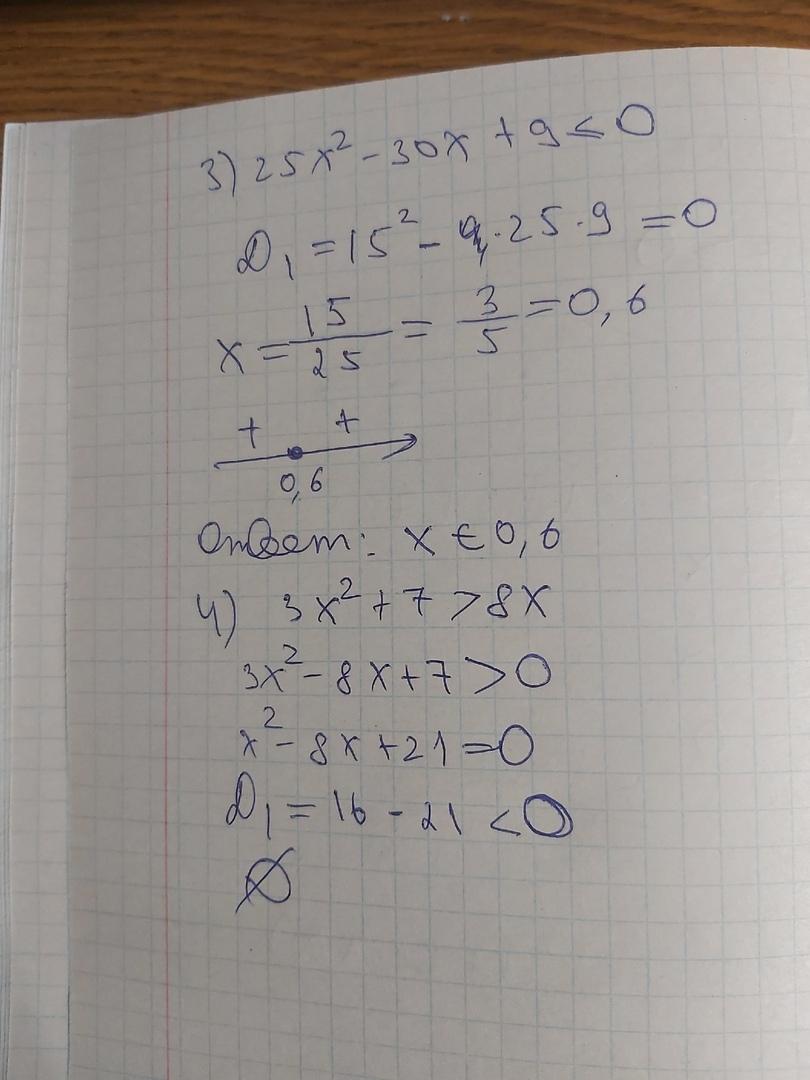 3) 25x² - 30x + 9 ≤ 0
D₁ = 15² - 25 · 9 = 0
x = 15/25 = 3/5 = 0,6
+ +
0,6
Ответ: x ∈ 0,6
4) 3x² + 7 > 8x
3x² - 8x + 7 > 0
x² - 8x + 21 = 0
D₁ = 16 - 21 < 0
∅